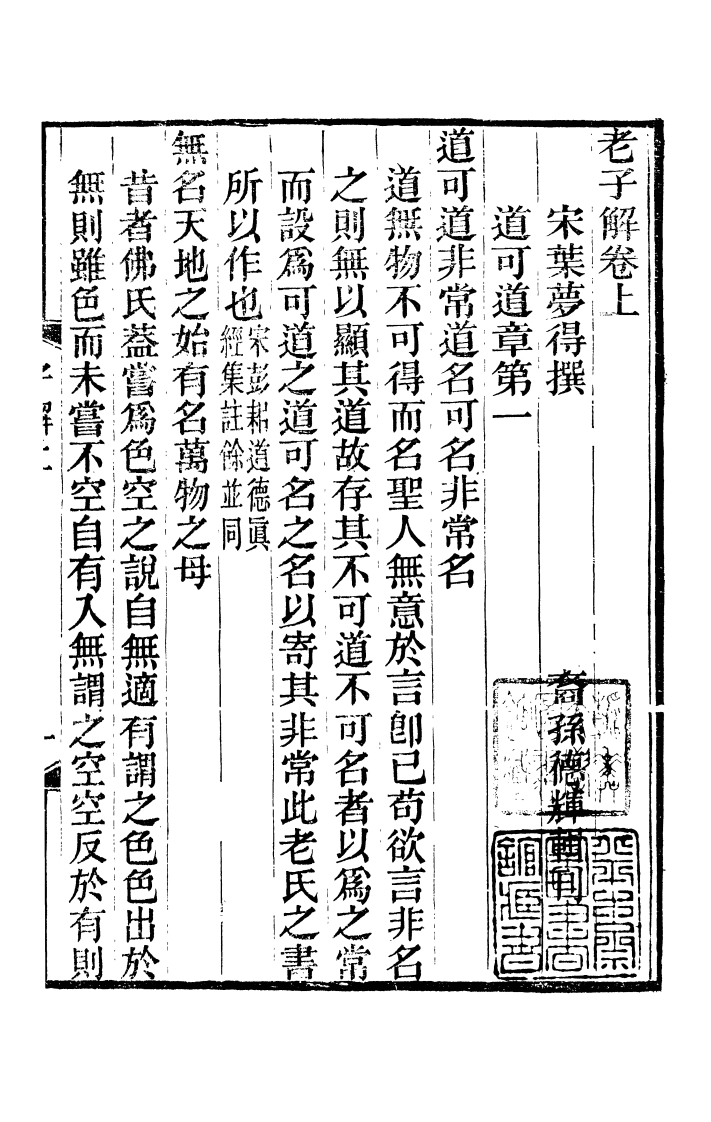 老子解卷上
宋葉夢得撰　裔孫德輝輯刊
道可道章第一
道可道非常道名可名非常名
道無物不可得而名聖人無意於言卽已苟欲言非名
之則無以顯其道故存其不可道不可名者以爲之常
而設爲可道之道可名之名以寄其非常此老氏之書
所以作也宋彭耜道德眞
經集註餘並同
無名天地之始有名萬物之母
昔者佛氏蓋嘗爲色空之說自無適有謂之色色出於
無則雖色而未嘗不空自有入無謂之空空反於有則
子解上
一